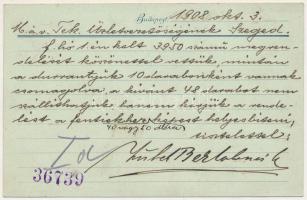 Budapest, 1908 okt. 3.
Máv. Tek. Üzletvezetőségének Szeged.
f. hó 1 én kelt 3950 számú megren-
delését köszönettel vettük, mintán
a durrantyúk 10 darabonként vannak
csomagolva, a kívánt 48 darabot nem
szállíthatjuk hanem kérjük a rende-
lést a fentiekhez képest helyesbíteni,
40 vagy 50 dbra
tisztelettel:
36739